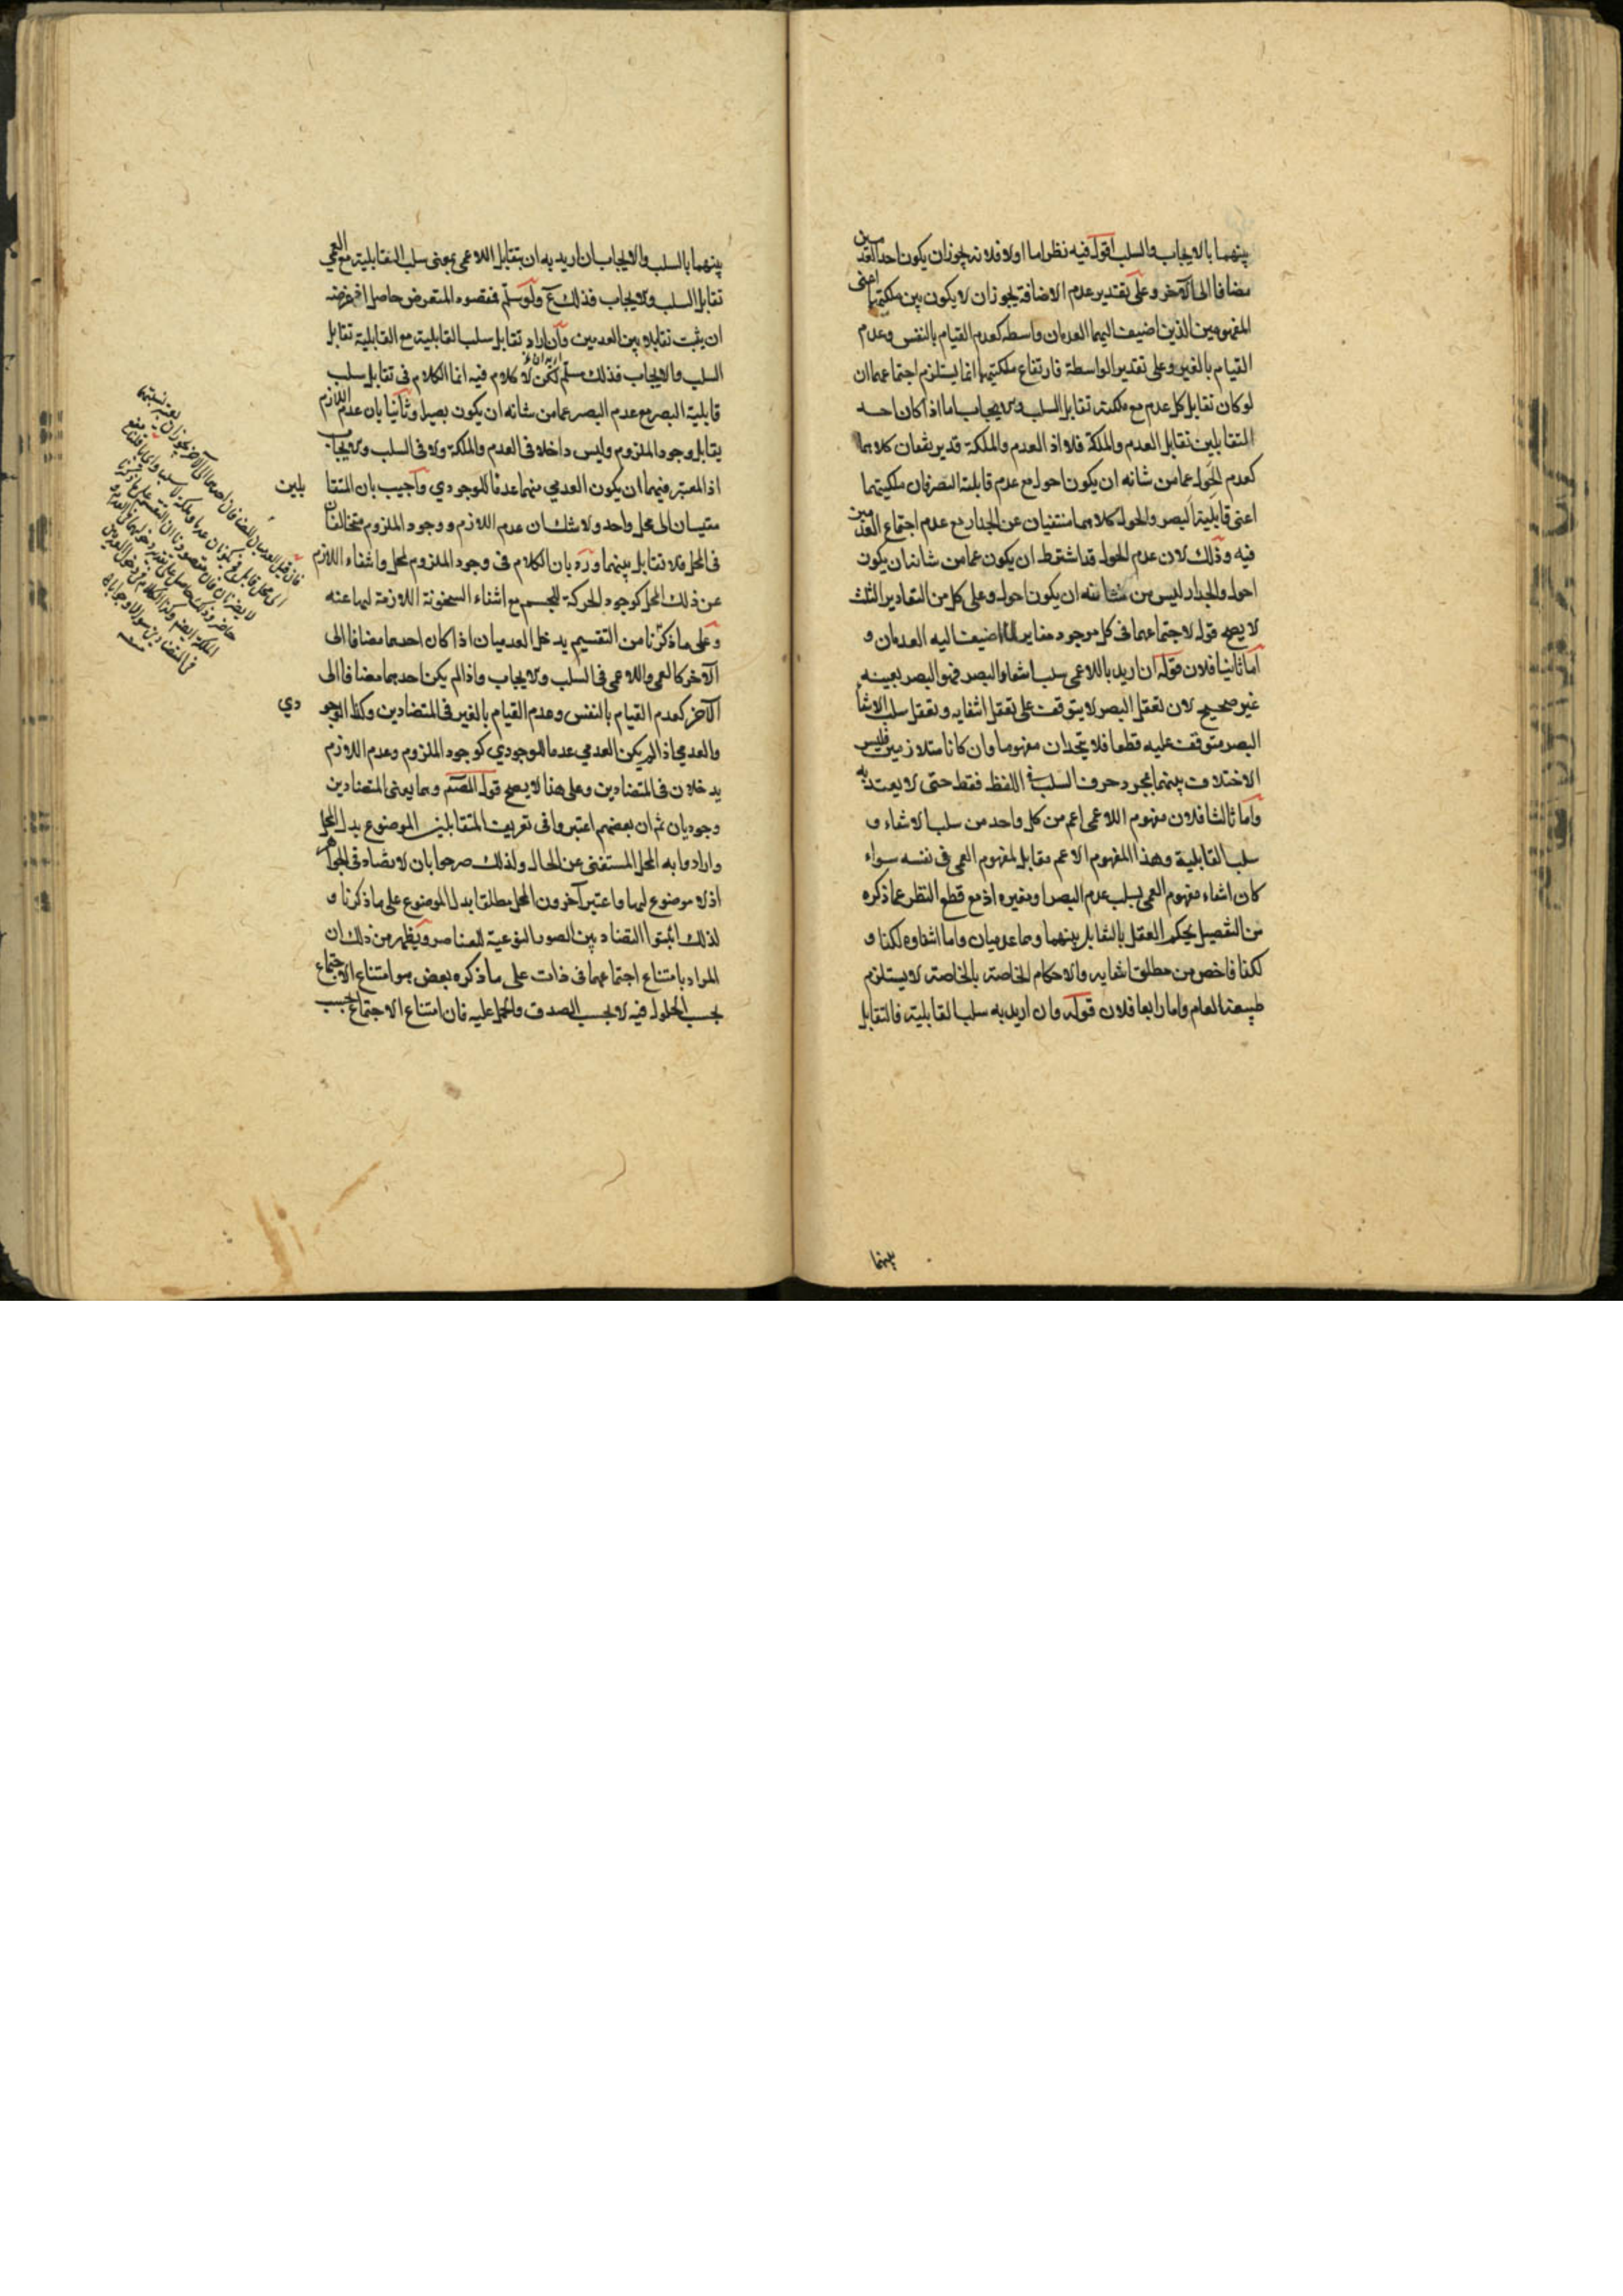 بينهما بالايجاب والسلب اقول فيه نظر اما اولا فلانه يجوز ان يكون احد العدمين
مضافا الى الآخر وعلى تقدير عدم الاضافة يجوز ان لا يكون بين ملكتيهما اعنى
المفهومين الذين اضيف اليهما العدمان واسطه كعدم القيام بالنفس وعدم
القيام بالغير وعلى تقدير الواسطة فارتفاع ملكتيهما انما يستلزم اجتماعهما ان
لو كان تقابل كل عدم مع ملكته تقابل السلب والايجاب اما اذا كان احد
المتقابلين تقابل العدم والملكة فلا اذ العدم والملكة قد يرتفعان كلاهما
كعدم الحول عما من شانه ان يكون احول مع عدم قابلية البصر فان ملكتيهما
اعنى قابلية البصر والحول كلاهما منتفيان عن الجدار مع عدم اجتماع العدمين
فيه وذلك لان عدم الحول قد اشترط ان يكون عما من شانه ان يكون
احول والجدار ليس من شانه ان يكون احول وعلى كل من التقادير الثلث
لا يصح قوله لاجتماعهما فى كل موجود مغاير لما اضيف اليه العدمان و
اما ثانيا فلان قوله ان اريد باللاعمى سلب انتفاء البصر فهو البصر بعينه
غير صحيح لان تعقل البصر لا يتوقف على تعقل انتفايه وتعقل سلب الانتفاء
البصر متوقف عليه قطعا فلا يتحدان مفهوما وان كانا متلازمين فليس
الاختلاف بينهما بمجرد حرف السلب فى اللفظ فقط حتى لا يعتد به
واما ثالثا فلان مفهوم اللاعمى اعم من كل واحد من سلب الانتفاء و
سلب القابلية وهذا المفهوم الاعم مقابل لمفهوم العمى فى نفسه سواء
كان انتفاء مفهوم العمى بسلب عدم البصر او بغيره اذ مع قطع النظر عما ذكره
من التفصيل يحكم العقل بالتقابل بينهما وهما عدميان واما انتفاوه لكذا و
لكذا فاخص من مطلق انتفايه والاحكام الخاصة بالخاصة لا يستلزم
طبيعة العام واما رابعا فلان قوله وان اريد به سلب القابلية فالتقابل
بينهما
بينهما بالسلب والايجاب ان اريد به ان يتقابل اللاعمى بمعنى سلب القابلية مع العمى
تقابل السلب والايجاب فذلك مم ولو سلم فمقصود المتعرض حاصل اذ غرضه
ان يثبت تقابلا بين العدمين وان اراد تقابل سلب القابلية مع القابلية تقابل
السلب والايجاب فذلك مسلم لكن لا كلام فيه انما الكلام فى تقابل سلب
قابلية البصر مع عدم البصر عما من شانه ان يكون بصيرا وثانيا بان عدم اللازم
يقابل وجود الملزوم وليس داخلا فى العدم والملكة ولا فى السلب والايجاب
اذ المعتبر فيهما ان يكون العدمى منهما عدما للوجودي واجيب بان المتقابلين
مقيسان الى محل واحد ولا شك ان عدم اللازم ووجود الملزوم متخالفان
فى المحل فلا تقابل بينهما ورد بان الكلام فى وجود الملزوم لمحل وانتفاء اللازم
عن ذلك المحل كوجود الحركة للجسم مع انتفاء السخونة اللازمة لها عنه
وعلى ما ذكرنا من التقسيم يدخل العدميان اذا كان احدهما مضافا الى
الآخر كالعمى واللاعمى فى السلب والايجاب واذا لم يكن احدهما مضافا الى
الآخر كعدم القيام بالنفس وعدم القيام بالغير فى المتضادين وكذا الوجودي
والعدمى اذا لم يكن العدمى عدما للوجودي كوجود الملزوم وعدم اللازم
يدخلان فى المتضادين وعلى هذا لا يصح قول المصنف وهما يعنى المتضادين
وجوديان ثم ان بعضهم اعتبروا فى تعريف المتقابلين الموضوع بدل المحل
وارادوا به المحل المستغنى عن الحال ولذلك صرحوا بان لا تضاد فى الجواهر
اذ لا موضوع لها واعتبر آخرون المحل مطلقا بدل الموضوع على ما ذكرنا و
لذلك اثبتوا التضاد بين الصور النوعية للعناصر ويظهر من ذلك ان
المراد بامتناع اجتماعهما فى ذات على ما ذكره بعض هو امتناع الاجتماع
بحسب الحلول فيه لا بحسب الصدق والحمل عليه فان امتناع الاجتماع بحسب